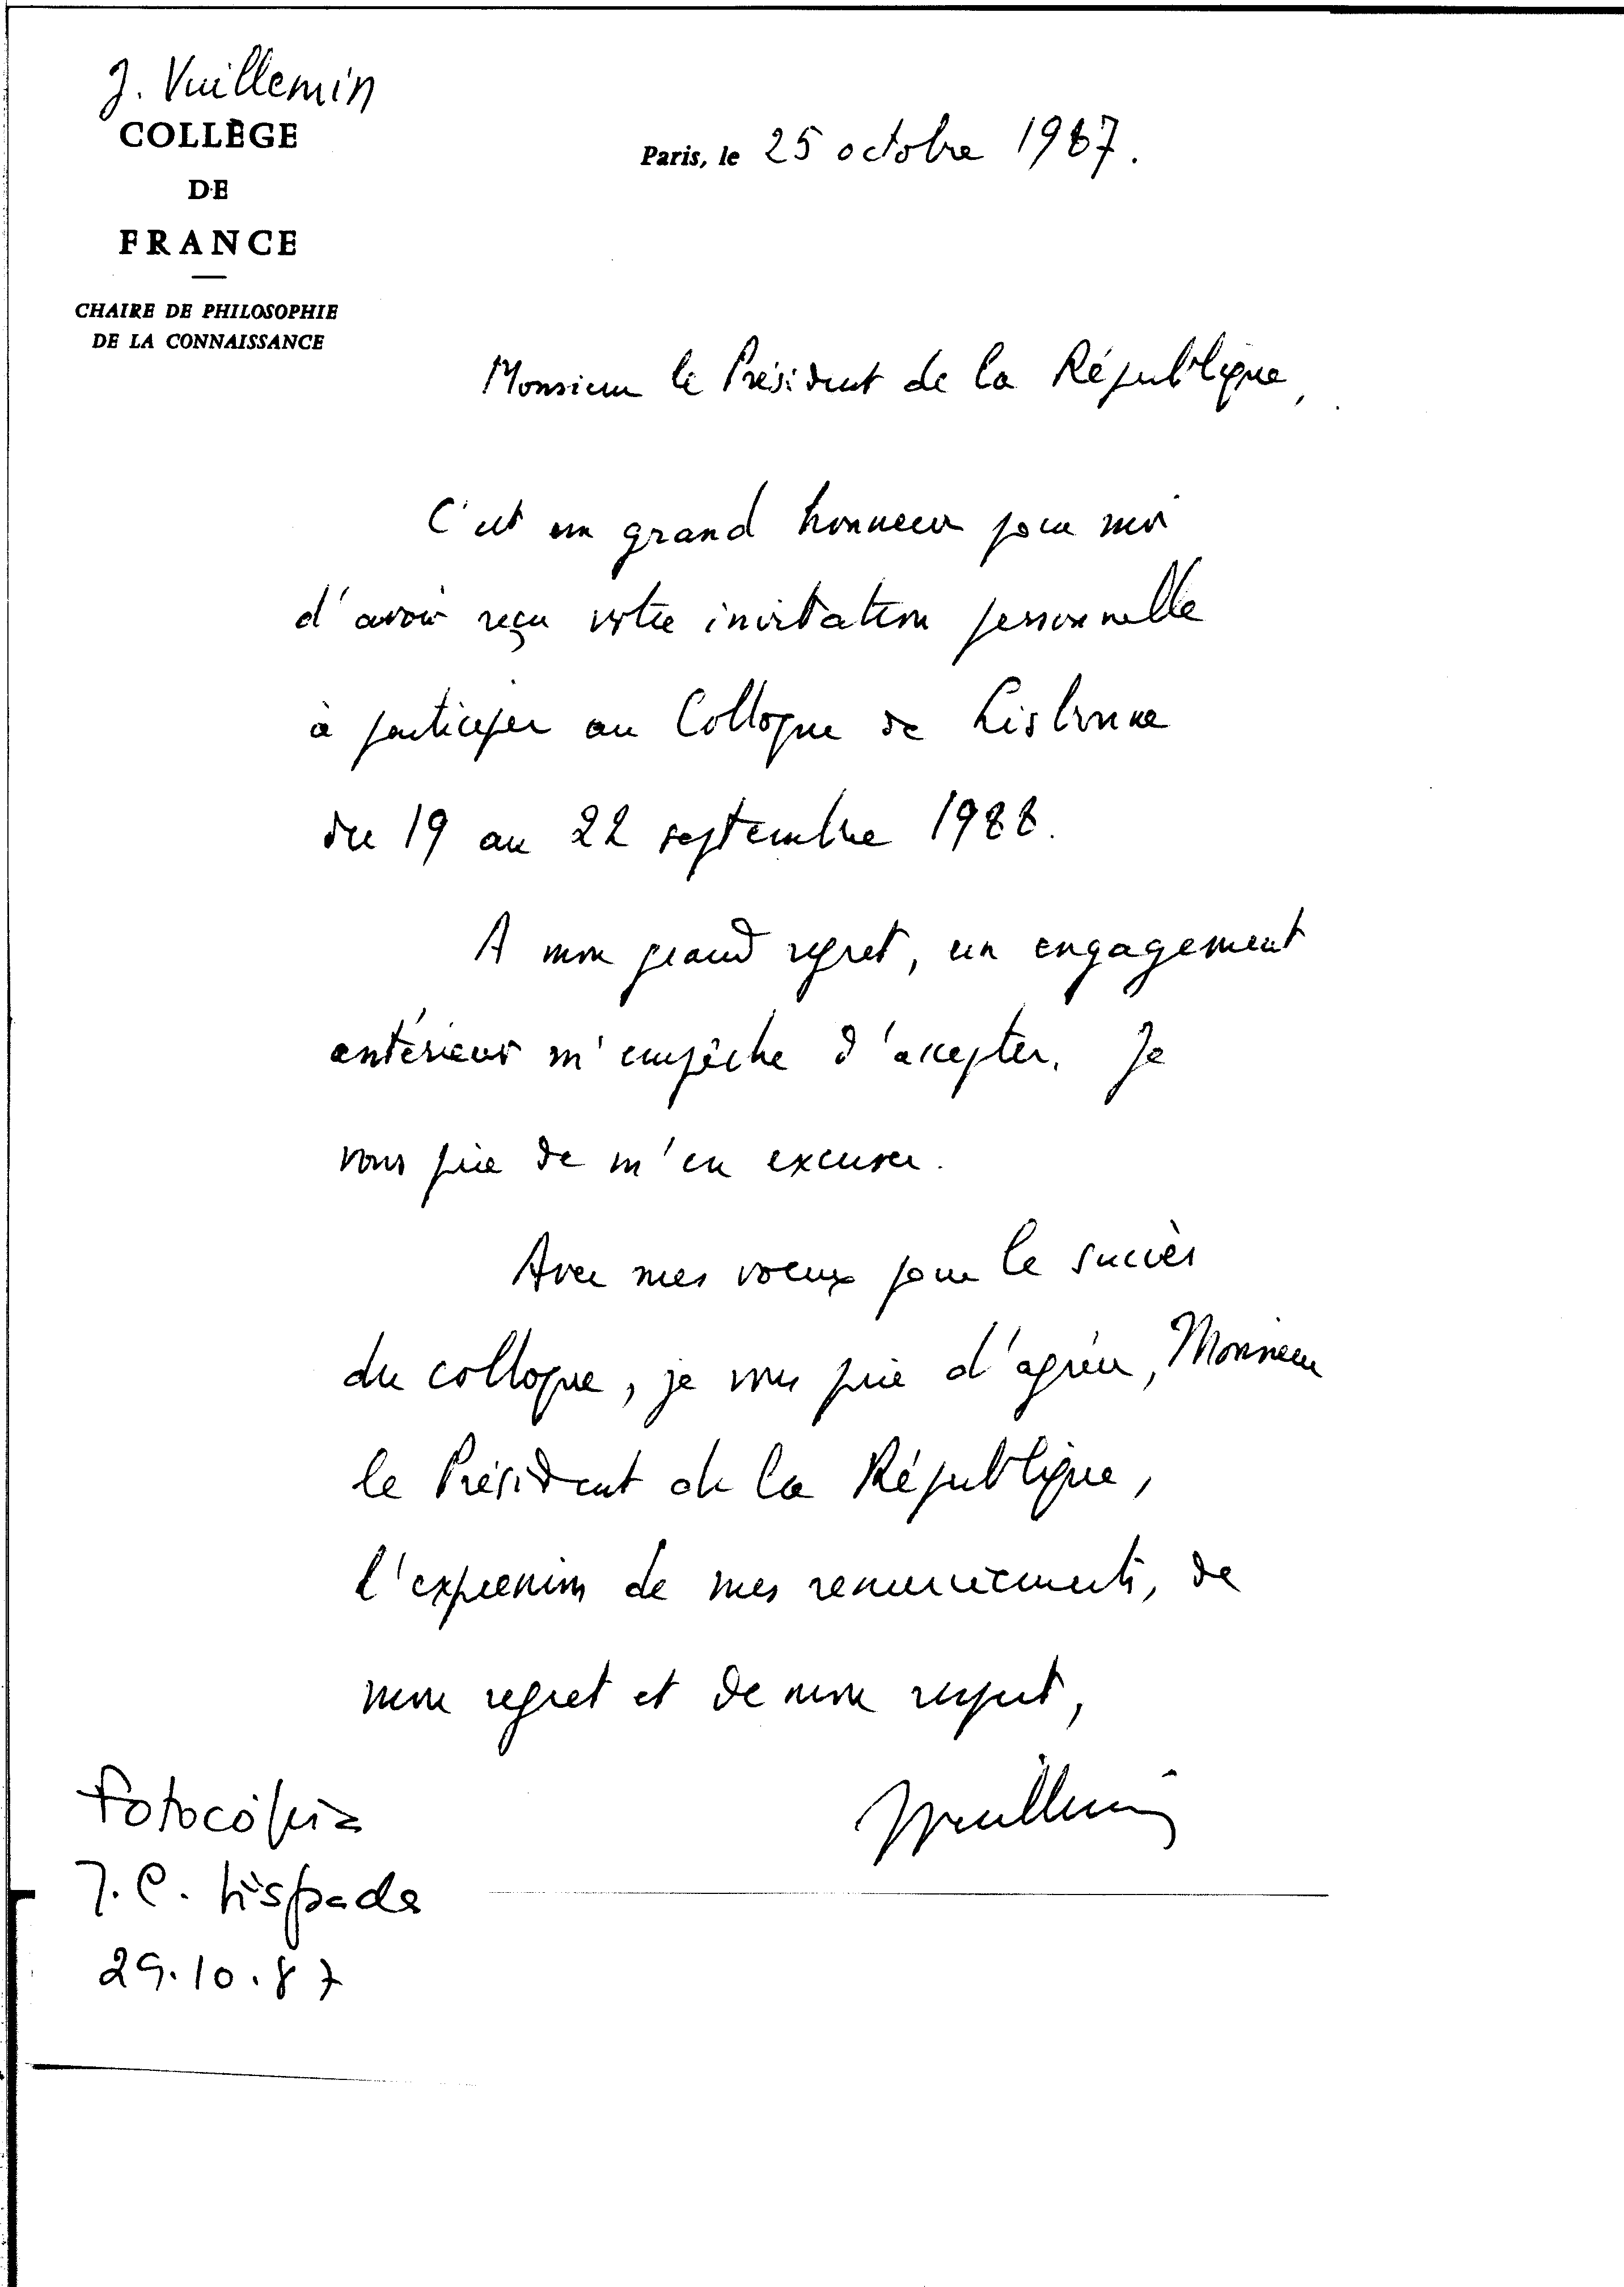 J. Vuillemin
COLLÈGE
DE
FRANCE
CHAIRE DE PHILOSOPHIE
DE LA CONNAISSANCE
Paris, le 25 octobre 1987.
Monsieur le Président de la République,
C'est un grand honneur pour moi
d'avoir reçu votre invitation personnelle
à participer au Colloque de Lisbonne
du 19 au 22 septembre 1988.
A mon grand regret, un engagement
antérieur m'empêche d'accepter. Je
vous prie de m'en excuser.
Avec mes voeux pour le succès
du colloque, je vous prie d'agréer, Monsieur
le Président de la République,
l'expression de mes remerciements, de
mon regret et de mon respect,
JVuillemin
Fotocópia
J.C.
29.10.87